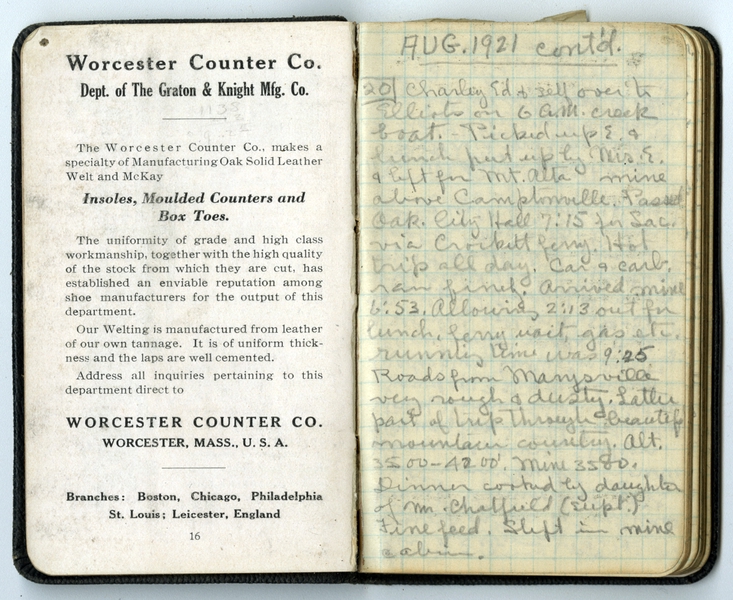 Worcester Counter Co.
Dept. of The Graton & Knight Mfg. Co.
The Worcester Counter Co., makes a
specialty of Manufacturing Oak Solid Leather
Welt and McKay
Insoles, Moulded Counters and
Box Toes.
The uniformity of grade and high class
workmanship, together with the high quality
of the stock from which they are cut, has
established an enviable reputation among
shoe manufacturers for the output of this
department.
Our Welting is manufactured from leather
of our own tannage. It is of uniform thick-
ness and the laps are well cemented.
Address all inquiries pertaining to this
department direct to
WORCESTER COUNTER CO.
WORCESTER, MASS., U. S. A.
Branches: Boston, Chicago, Philadelphia
St. Louis; Leicester, England
16
AUG. 1921 cont'd.
20/ Charley Ed & self over to
Elliotts on 6 A.M. creek
boat. - Picked up E. &
lunch put up by Mrs. E.
& left for Mt. Alta mine
above Camptonville. Passed
Oak. City Hall 7:15 for Sac.
via Crockett ferry. Hot
trip all day. Car & carb.
ran finely. Arrived mine
6:53. Allowing 2:13 out for
lunch, ferry wait, gas etc.
running time was 9:25
Roads from Marysville
very rough & dusty. Latter
part of trip through beautif
mountain country. Alt.
3500-4200'. Mine 3500.
Dinner cooked by daughter
of Mr. Chatfield (Supt.)
Fine feed. Slept in mine
cabin.